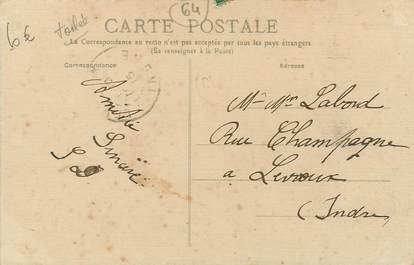 6€ toilée
64
CARTE POSTALE
La Correspondance au verso n'est pas acceptée par tous les pays étrangers
(Se renseigner à la Poste)
Correspondance
Adresse
Amitié
Sincère
Mr Mme Labord
Rue Champagne
a Levroux
(Indre)